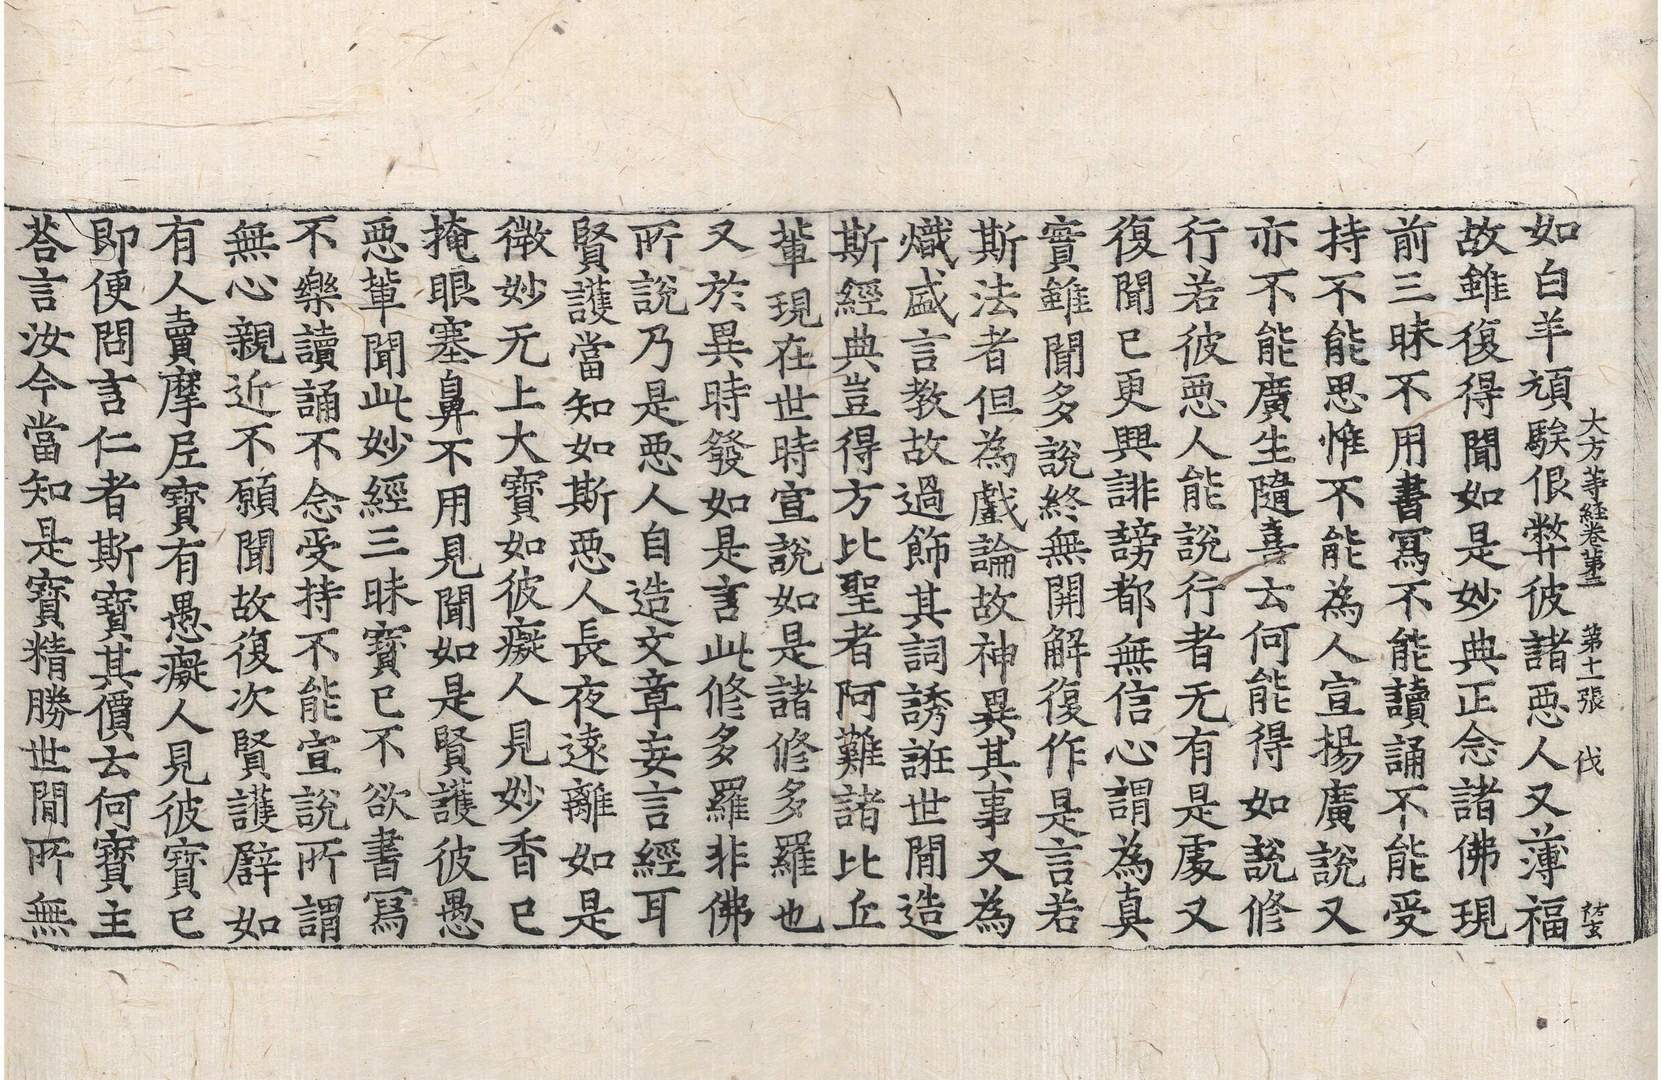 大方等経卷第二 第十一張 伐
如白羊頑騃佷弊彼諸惡人又薄福
故雖復得聞如是妙典正念諸佛現
前三昧不用書寫不能讀誦不能受
持不能思惟不能為人宣揚廣說又
亦不能廣生隨喜云何能得如說修
行若彼惡人能說行者无有是處又
復聞已更興誹謗都無信心謂為真
實雖聞多說終無開解復作是言若
斯法者但為戲論故神異其事又為
熾盛言教故過飾其詞誘誑世間造
斯經典豈得方比聖者阿難諸比丘
輩現在世時宣說如是諸修多羅也
又於異時發如是言此修多羅非佛
所說乃是惡人自造文章妄言經耳
賢護當知如斯惡人長夜遠離如是
微妙无上大寶如彼癡人見妙香已
掩眼塞鼻不用見聞如是賢護彼愚
惡輩聞此妙經三昧寶已不欲書寫
不樂讀誦不念受持不能宣說所謂
無心親近不願聞故復次賢護譬如
有人賣摩尼寶有愚癡人見彼寶已
即便問言仁者斯寶其價云何寶主
荅言汝今當知是寶精勝世間所無